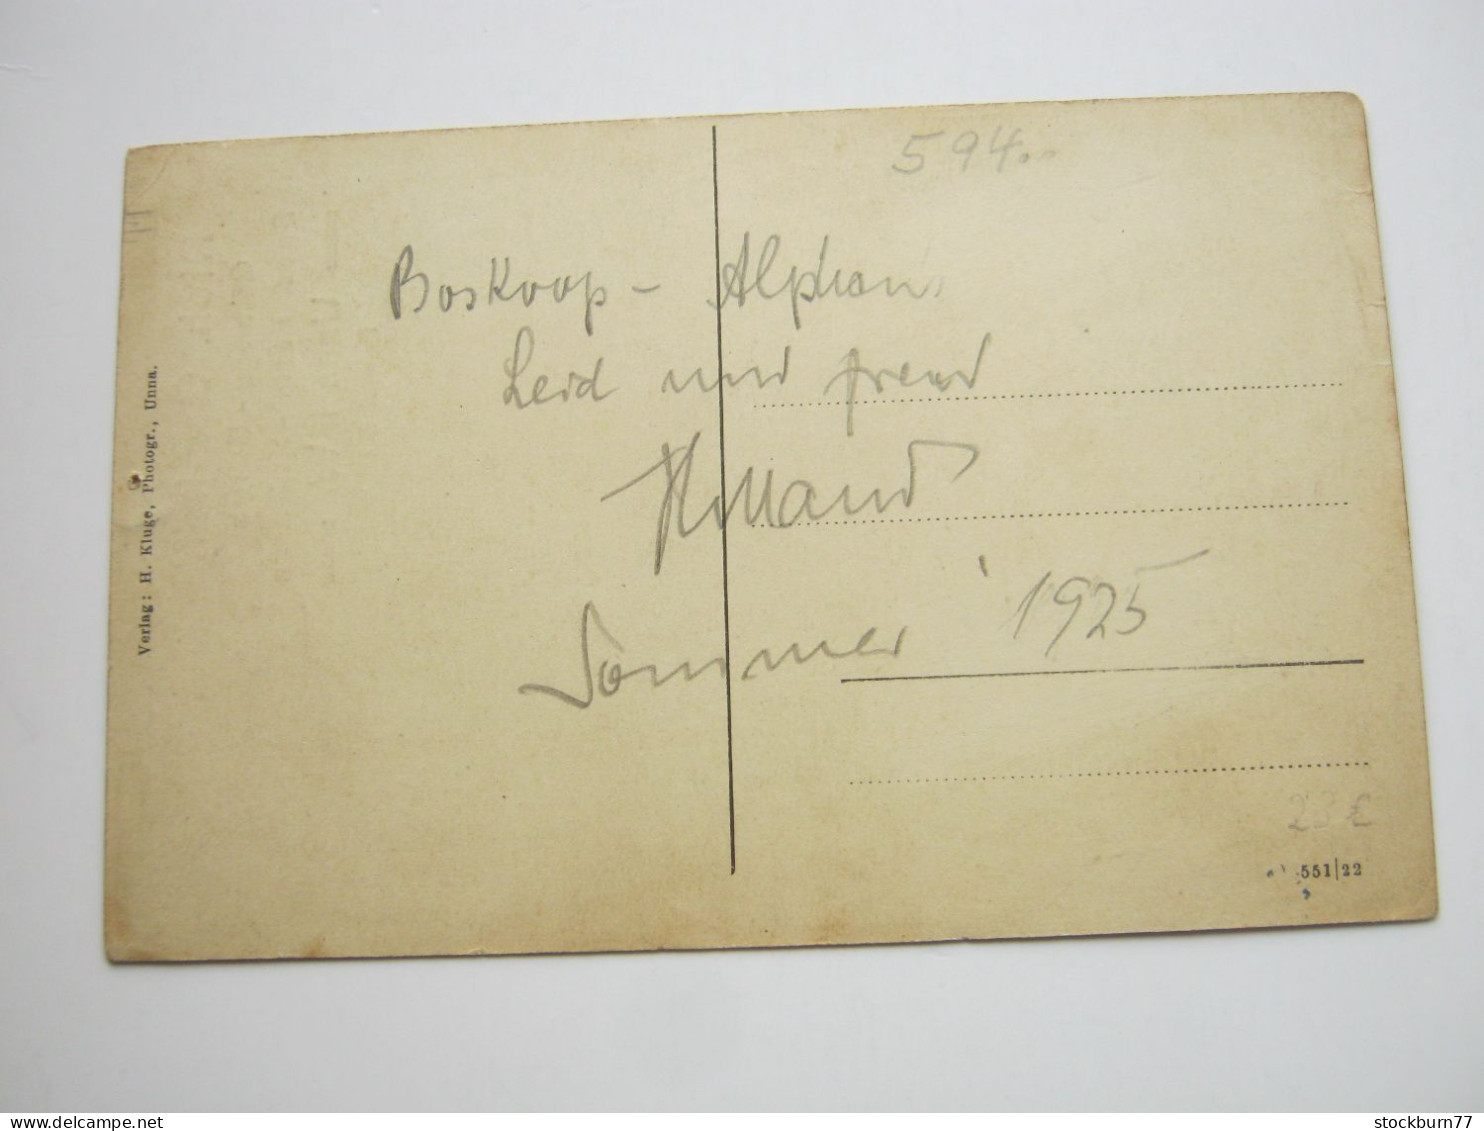 594..
Boskoop - Alphen
Leid und freud
Holland
Sommer 1925
Verlag: H. Kluge, Photogr., Unna.
23 €
551/22
www.delcampe.net
stockburn77